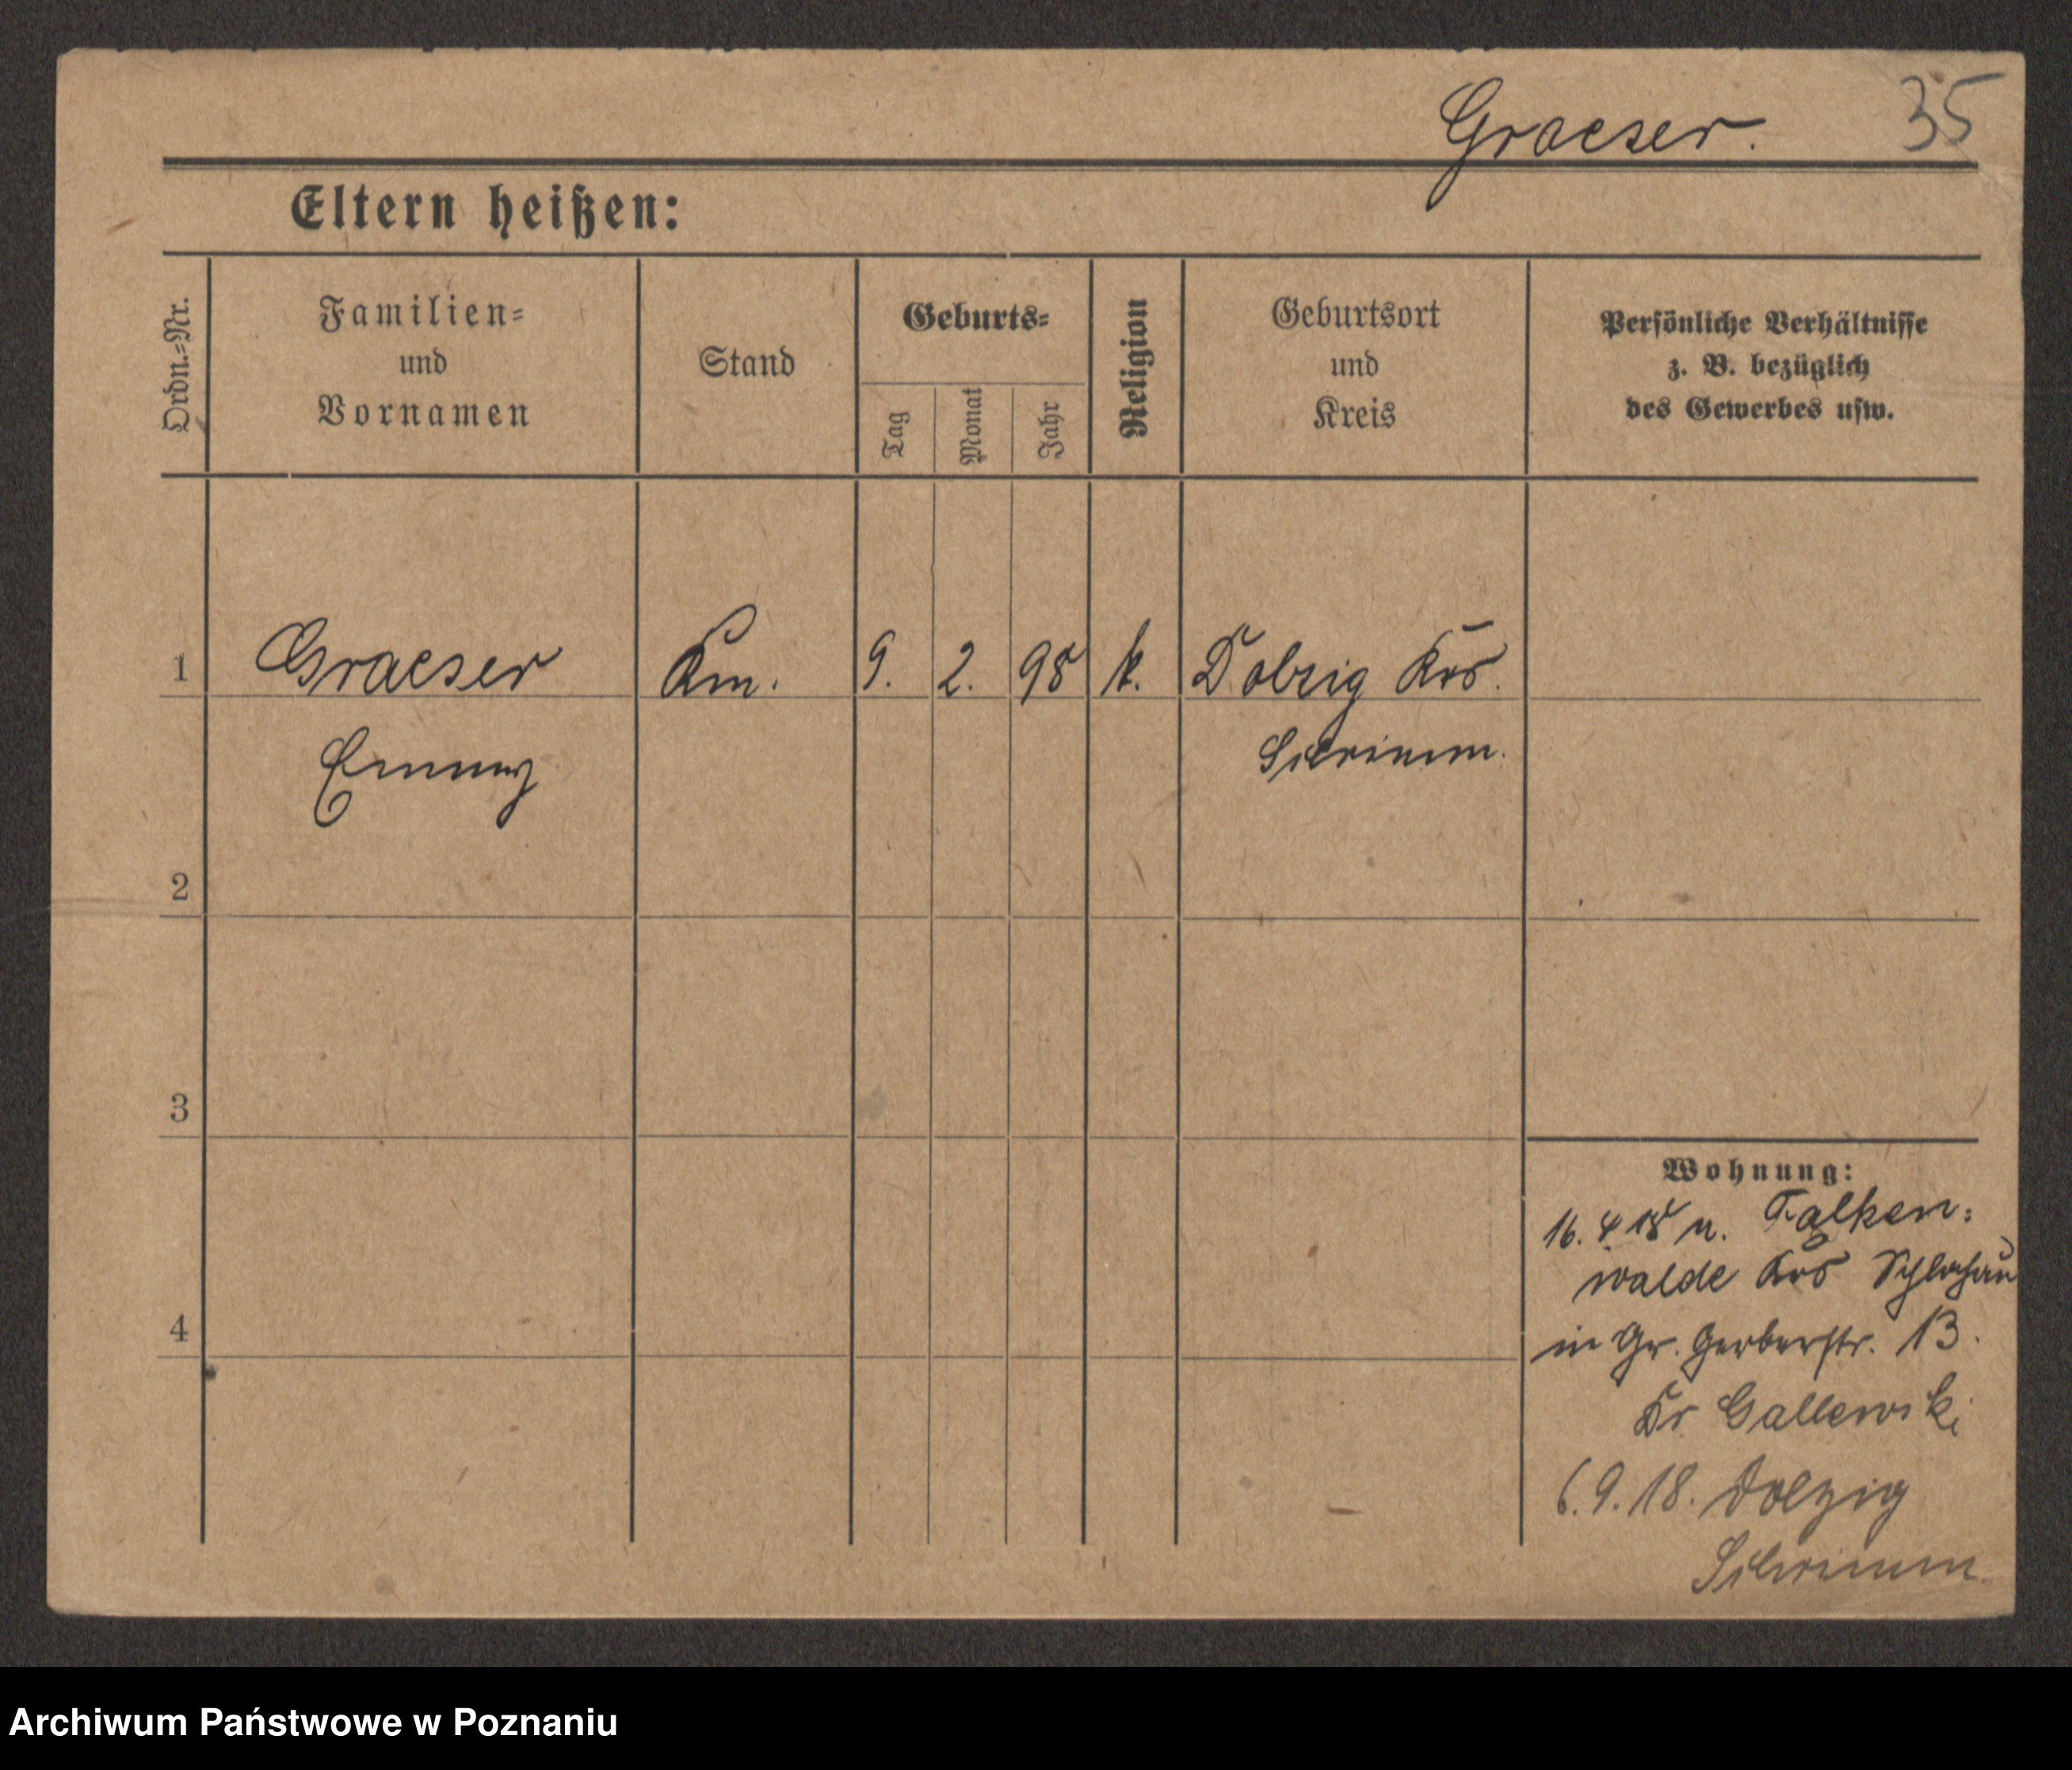 Graeser. 35
Eltern heißen:
Ordn.=Nr.
Familien=
und
Vornamen
Stand
Geburts=
Tag
Monat
Jahr
Religion
Geburtsort
und
Kreis
Persönliche Verhältnisse
z. B. bezüglich
des Gewerbes usw.
1 Graeser 9. 2. 98 k. Dolzig Krs.
Emmy Schrimm.
2
3
4
Wohnung:
16. 4 18 v. Falken=
walde Krs Schlochau
in Gr. Gerberstr. 13.
Gallewski
6.9.18. Dolzig
Schrimm
Archiwum Państwowe w Poznaniu